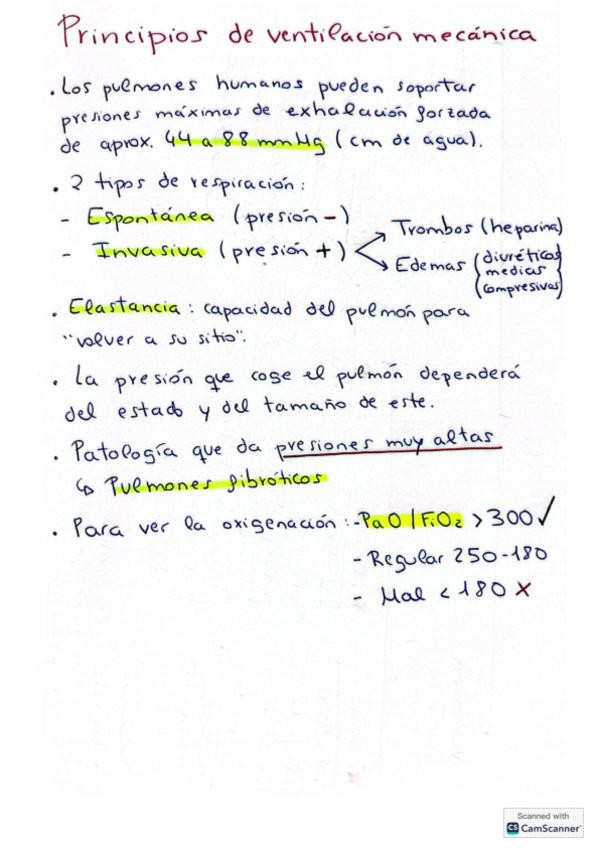 Principios de ventilación mecánica
. Los pulmones humanos pueden soportar
presiones máximas de exhalación forzada
de aprox. 44 a 88 mmHg (cm de agua).
. 2 tipos de respiración:
- Espontánea (presión -)
- Invasiva (presión +)
Trombos (heparina)
Edemas (diuréticos
medias
compresivas)
. Elastancia: capacidad del pulmón para
"volver a su sitio".
. La presión que coge el pulmón dependerá
del estado y del tamaño de este.
. Patología que da presiones muy altas
↳ Pulmones fibróticos
. Para ver la oxigenación: - PaO/FiO2 > 300 ✓
- Regular 250-180
- Mal < 180 X
Scanned with
CS CamScanner